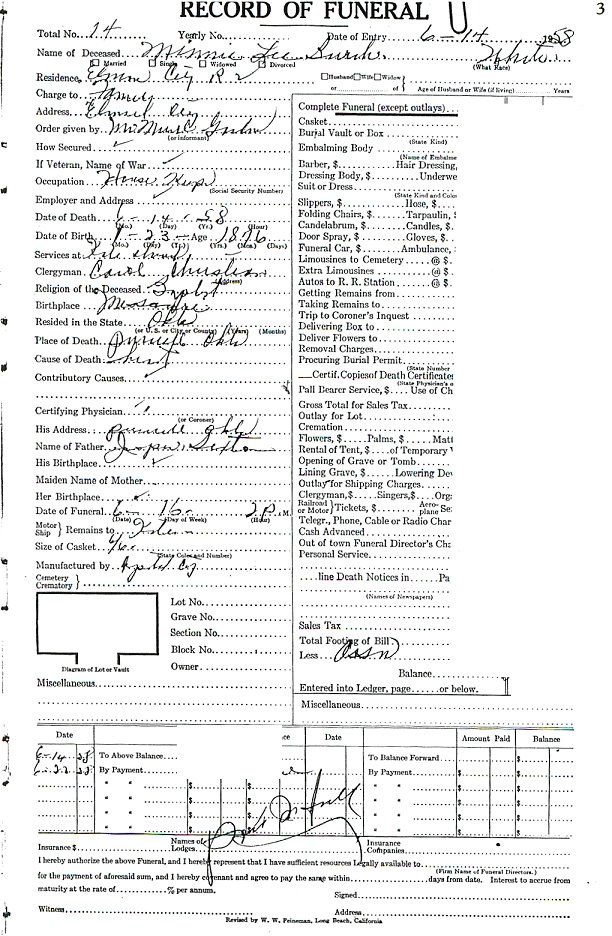 RECORD OF FUNERAL
3
Total No. 14 Yearly No. Date of Entry 6-14 1958
Name of Deceased Minnie Lee White
Married Single Widowed Divorced (What Race)
Residence City R 2 Husband Wife Widow
or of Age of Husband or Wife (if living) Years
Charge to Family
Address City
Order given by
(or informant)
How Secured
If Veteran, Name of War
Occupation House
(Social Security Number)
Employer and Address
Date of Death 6-14-58
(Mo.) (Day) (Yr.) (Hour)
Date of Birth 1-23- Age 1876
(Mo.) (Day) (Yr.) (Yrs.) (Mos.) (Days)
Services at
Clergyman
(Address)
Religion of the Deceased Baptist
Birthplace
Resided in the State Okla
(or U. S. or City or County) (Years) (Months)
Place of Death Okla
Cause of Death
Contributory Causes
Certifying Physician
(or Coroner)
His Address Okla
Name of Father
His Birthplace
Maiden Name of Mother
Her Birthplace
Date of Funeral 6-16 2 P. M.
(Date) (Day of Week) (Hour)
Motor Ship Remains to
Size of Casket
(State Color and Number)
Manufactured by
Cemetery Crematory
Lot No.
Grave No.
Section No.
Block No.
Owner
Diagram of Lot or Vault
Miscellaneous
Complete Funeral (except outlays)
Casket
Burial Vault or Box
(State Kind)
Embalming Body
(Name of Embalme
Barber, $ Hair Dressing,
Dressing Body, $ Underwe
Suit or Dress
(State Kind and Colo
Slippers, $ Hose, $
Folding Chairs, $ Tarpaulin, $
Candelabrum, $ Candles, $
Door Spray, $ Gloves, $
Funeral Car, $ Ambulance,
Limousines to Cemetery @ $
Extra Limousines @ $
Autos to R. R. Station @ $
Getting Remains from
Taking Remains to
Trip to Coroner's Inquest
Delivering Box to
Deliver Flowers to
Removal Charges
Procuring Burial Permit
(State Number
Certif. Copies of Death Certificates
(State Physician's o
Pall Bearer Service, $ Use of Ch
Gross Total for Sales Tax
Outlay for Lot
Cremation
Flowers, $ Palms, $ Matt
Rental of Tent, $ of Temporary V
Opening of Grave or Tomb
Lining Grave, $ Lowering Dev
Outlay for Shipping Charges
Clergyman, $ Singers, $ Org
Railroad or Motor Tickets, $ Aeroplane Se
Telegr., Phone, Cable or Radio Char
Cash Advanced
Out of town Funeral Director's Cha
Personal Service
line Death Notices in Pa
(Names of Newspapers)
Sales Tax
Total Footing of Bill
Less Assn
Balance
Entered into Ledger, page or below.
Miscellaneous
Date ce Date Amount Paid Balance
6-14 58 To Above Balance To Balance Forward $ $
6-22 58 By Payment By Payment $ $
" " $ $ " " $ $
" " $ $ " " $ $
" " $ $ " " $ $
Insurance $ Names of Lodges Insurance Companies
I hereby authorize the above Funeral, and I hereby represent that I have sufficient resources Legally available to
(Firm Name of Funeral Directors.)
for the payment of aforesaid sum, and I hereby covenant and agree to pay the same within days from date. Interest to accrue from
maturity at the rate of % per annum.
Signed
Witness Address
Revised by W. W. Feineman, Long Beach, California